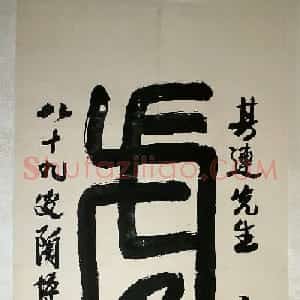 其連先生
八十九叟陶博
Shufaziliao.com